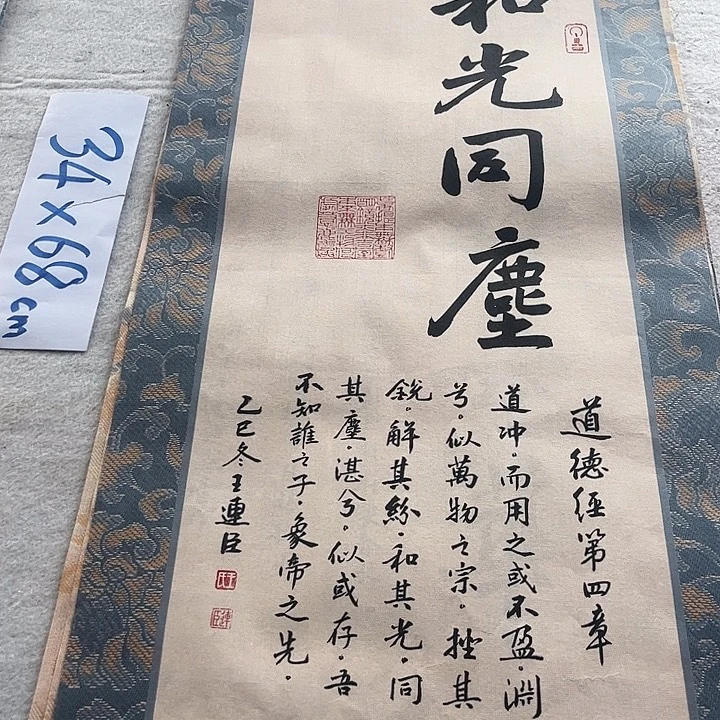 和光同塵
道德經第四章
道冲。而用之或不盈。淵
兮。似萬物之宗。挫其
銳。解其紛。和其光。同
其塵。湛兮。似或存。吾
不知誰之子。象帝之先。
乙巳冬王連臣
34×68cm